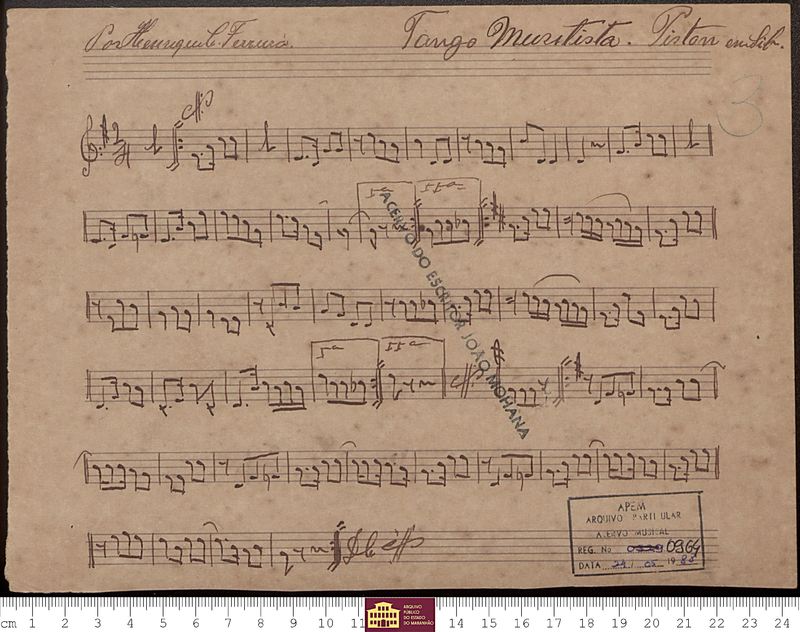 Por Henrique C. Ferreira. Tango Muritista. Piston em Sib.
3
1ª 2ª
ACERVO DO ESCRITOR JOÃO MOHANA
1ª 2ª
D.C.
APEM
ARQUIVO PARTICULAR
ACERVO MUSICAL
REG. No 0964
DATA 24 / 05 / 19
cm 1 2 3 4 5 6 7 8 9 10 11 14 15 16 17 18 19 20 21 22 23 24
ARQUIVO
PÚBLICO
DO ESTADO
DO MARANHÃO